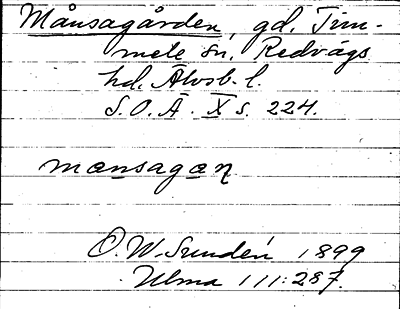 Månsagården, gd, Tim-
mele sn. Redvägs
hd. Älvsb. l.
S.O.Ä. X s. 224.
mænsagæn
O.W.Sundén 1899
Ulma 111:287.